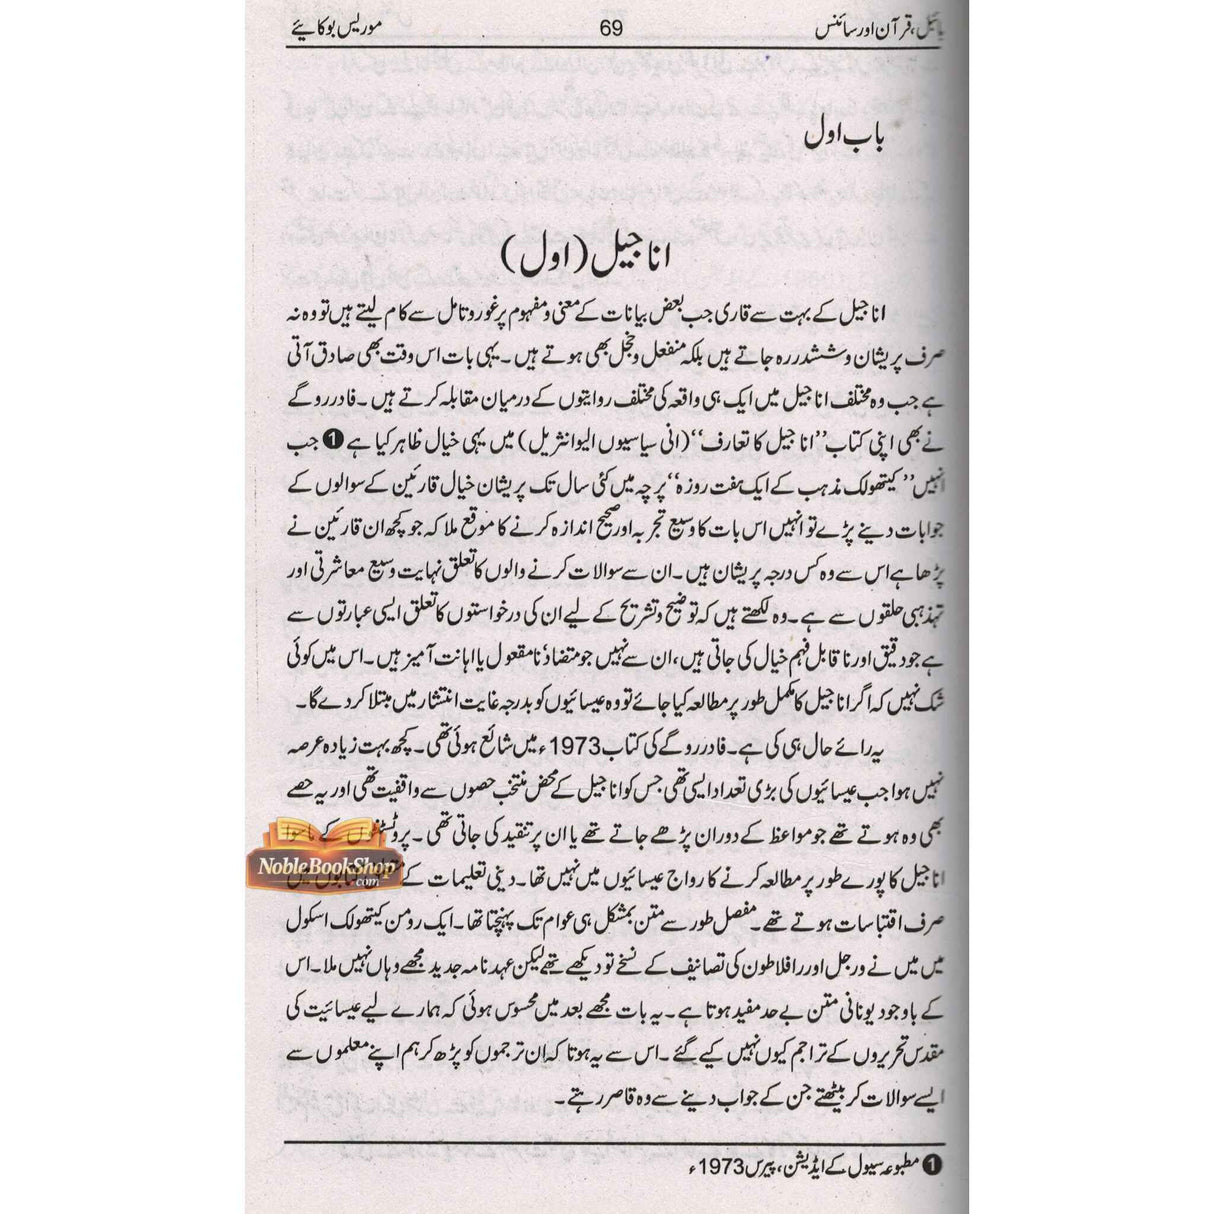 بائبل، قرآن اور سائنس 69 موریس بوکائیے
باب اول
اناجیل (اول)
اناجیل کے بہت سے قاری جب بعض بیانات کے معنی و مفہوم پر غور و تامل سے کام لیتے ہیں تو وہ نہ
صرف پریشان و ششدر رہ جاتے ہیں بلکہ منفعل و خجل بھی ہوتے ہیں۔ یہی بات اس وقت بھی صادق آتی
ہے جب وہ مختلف اناجیل میں ایک ہی واقعہ کی مختلف روایتوں کے درمیان مقابلہ کرتے ہیں۔ فادر روگے
نے بھی اپنی کتاب ’’اناجیل کا تعارف‘‘ (انی سیاسیوں الیوانثریل) میں یہی خیال ظاہر کیا ہے ❶ جب
انہیں ’’کیتھولک مذہب کے ایک ہفت روزہ‘‘ پرچہ میں کئی سال تک پریشان خیال قارئین کے سوالوں کے
جوابات دینے پڑے تو انہیں اس بات کا وسیع تجربہ اور صحیح اندازہ کرنے کا موقع ملا کہ جو کچھ ان قارئین نے
پڑھا ہے اس سے وہ کس درجہ پریشان ہیں۔ ان سے سوالات کرنے والوں کا تعلق نہایت وسیع معاشرتی اور
تہذیبی حلقوں سے ہے۔ وہ لکھتے ہیں کہ توضیح و تشریح کے لیے ان کی درخواستوں کا تعلق ایسی عبارتوں سے
ہے جو دقیق اور ناقابل فہم خیال کی جاتی ہیں، ان سے نہیں جو متضاد نامقعول یا اہانت آمیز ہیں۔ اس میں کوئی
شک نہیں کہ اگر اناجیل کا مکمل طور پر مطالعہ کیا جائے تو وہ عیسائیوں کو بدرجہ غایت انتشار میں مبتلا کر دے گا۔
یہ رائے حال ہی کی ہے۔ فادر روگے کی کتاب 1973ء میں شائع ہوئی تھی۔ کچھ بہت زیادہ عرصہ
نہیں ہوا جب عیسائیوں کی بڑی تعداد ایسی تھی جس کو اناجیل کے محض منتخب حصوں سے واقفیت تھی اور یہ حصے
بھی وہ ہوتے تھے جو مواعظ کے دوران پڑھے جاتے تھے یا ان پر تنقید کی جاتی تھی۔ پروٹسٹنٹوں کے ماسوا
NobleBookShop
.com
اناجیل کا پورے طور پر مطالعہ کرنے کا رواج عیسائیوں میں نہیں تھا۔ دینی تعلیمات کے میں
صرف اقتباسات ہوتے تھے۔ مفصل طور سے متن بمشکل ہی عوام تک پہنچتا تھا۔ ایک رومن کیتھولک اسکول
میں میں نے ورجل اور رافلاطون کی تصانیف کے نسخے تو دیکھے تھے لیکن عہد نامہ جدید مجھے وہاں نہیں ملا۔ اس
کے باوجود یونانی متن بے حد مفید ہوتا ہے۔ یہ بات مجھے بعد میں محسوس ہوئی کہ ہمارے لیے عیسائیت کی
مقدس تحریروں کے تراجم کیوں نہیں کیے گئے۔ اس سے یہ ہوتا کہ ان ترجموں کو پڑھ کر ہم اپنے معلموں سے
ایسے سوالات کر بیٹھتے جن کے جواب دینے سے وہ قاصر رہتے۔
❶ مطبوعہ سیول کے ایڈیشن، پیرس 1973ء